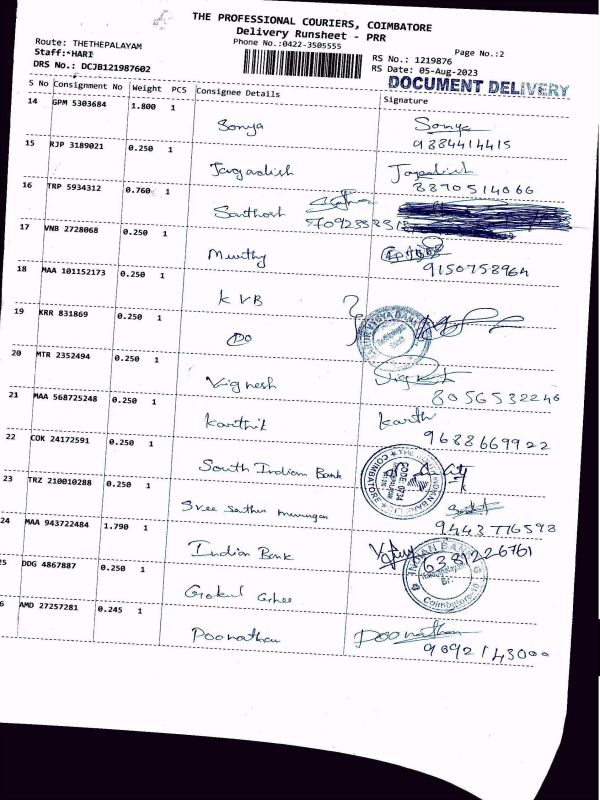 THE PROFESSIONAL COURIERS, COIMBATORE
Delivery Runsheet - PRR
Phone No.:0422-3505555
Page No.:2
Route: THETHEPALAYAM
Staff: HARI
RS No.: 1219876
DRS No.: DCJB121987602
RS Date: 05-Aug-2023
DOCUMENT DELIVERY
S No Consignment No Weight PCS Consignee Details Signature
14 GPM 5303684 1.800 1 Sonya Sonya
9884414415
15 RJP 3189021 0.250 1 Jagadish Jagadish
8870514066
16 TRP 5934312 0.760 1 Santhosh
17 VNB 2728068 0.250 1 Murthy
9150758964
18 MAA 101152173 0.250 1 KVB
19 KRR 831869 0.250 1 DO
20 MTR 2352494 0.250 1 Vignesh
8056532246
21 MAA 568725248 0.250 1 Karthik Karth
9688669922
22 COK 24172591 0.250 1 South Indian Bank
23 TRZ 210010288 0.250 1 Sree Sathu Murugan
9443776598
24 MAA 943722484 1.790 1 Indian Bank
6381226761
25 DDG 4867887 0.250 1 Gokul Ghee
Coimbatore
26 AMD 27257281 0.245 1 Poonathan Poonathan
9092143000